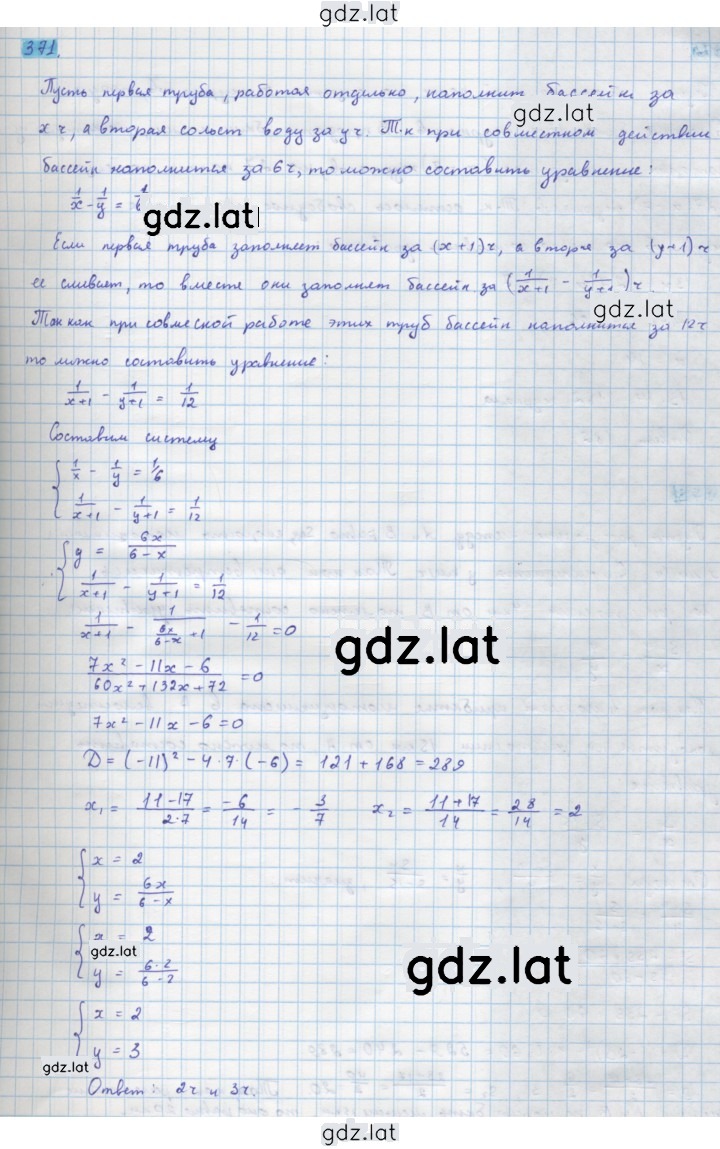 gdz.lat
371.
Пусть первая труба, работая отдельно, наполнит бассейн за
gdz.lat
x ч, а вторая сольёт воду за y ч. Т.к при совместном действии
бассейн наполнится за 6 ч, то можно составить уравнение:
1/x - 1/y = 1/6
gdz.lat
Если первая труба заполняет бассейн за (x+1) ч, а вторая за (y+1) ч
ее сливает, то вместе они заполнят бассейн за (1/(x+1) - 1/(y+1)) ч.
gdz.lat
Так как при совмесной работе этих труб бассейн наполнится за 12 ч
то можно составить уравнение:
1/(x+1) - 1/(y+1) = 1/12
Составим систему
1/x - 1/y = 1/6
1/(x+1) - 1/(y+1) = 1/12
y = 6x/(6-x)
1/(x+1) - 1/(y+1) = 1/12
1/(x+1) - 1/(6x/(6-x) + 1) - 1/12 = 0
gdz.lat
(7x² - 11x - 6)/(60x² + 132x + 72) = 0
7x² - 11x - 6 = 0
D = (-11)² - 4·7·(-6) = 121 + 168 = 289
x₁ = (11-17)/(2·7) = -6/14 = -3/7 x₂ = (11+17)/14 = 28/14 = 2
x = 2
y = 6x/(6-x)
x = 2
gdz.lat
y = (6·2)/(6-2)
gdz.lat
x = 2
y = 3
gdz.lat
Ответ: 2ч и 3ч.
gdz.lat